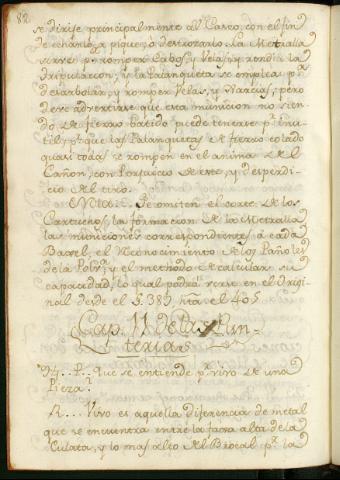 82
se dirije principalmente al Casco, con el fin
de echarlo a pique, o destrozarlo. La Metralla
sirve pª romper Cabos, y Velas, y rendir la
tripulacion; y la Palanqueta se emplea pª
desarbolar, y romper Velas, y Xarcias; pero
deve advertirse que esta municion no sien-
do de fierro batido puede tenerse pr inu-
til, prque las Palanquetas de fierro colado
quasi todas se rompen en el anima del
Cañon, con Perjuicio de este, y desperdi-
cio del tiro.
Nota: Se omiten el corte de los
Cartuchos, la formacion de la Metralla
las municiones correspondientes à cada
Baxel, el Reconocimiento de los Pañoles
de la Polvª, y el methodo de calcular su
capacidad, lo qual podrà verse en el Origi-
nal desde el §. 385 hta. el 405
Cap. 11 de las Pun-
terias
94. P. Que se entiende pr vivo de una
Pieza?
R... Vivo es aquella diferencia de metal
que se encuentra entre la faxa alta de la
Culata, y lo mas alto del Brocal pr la